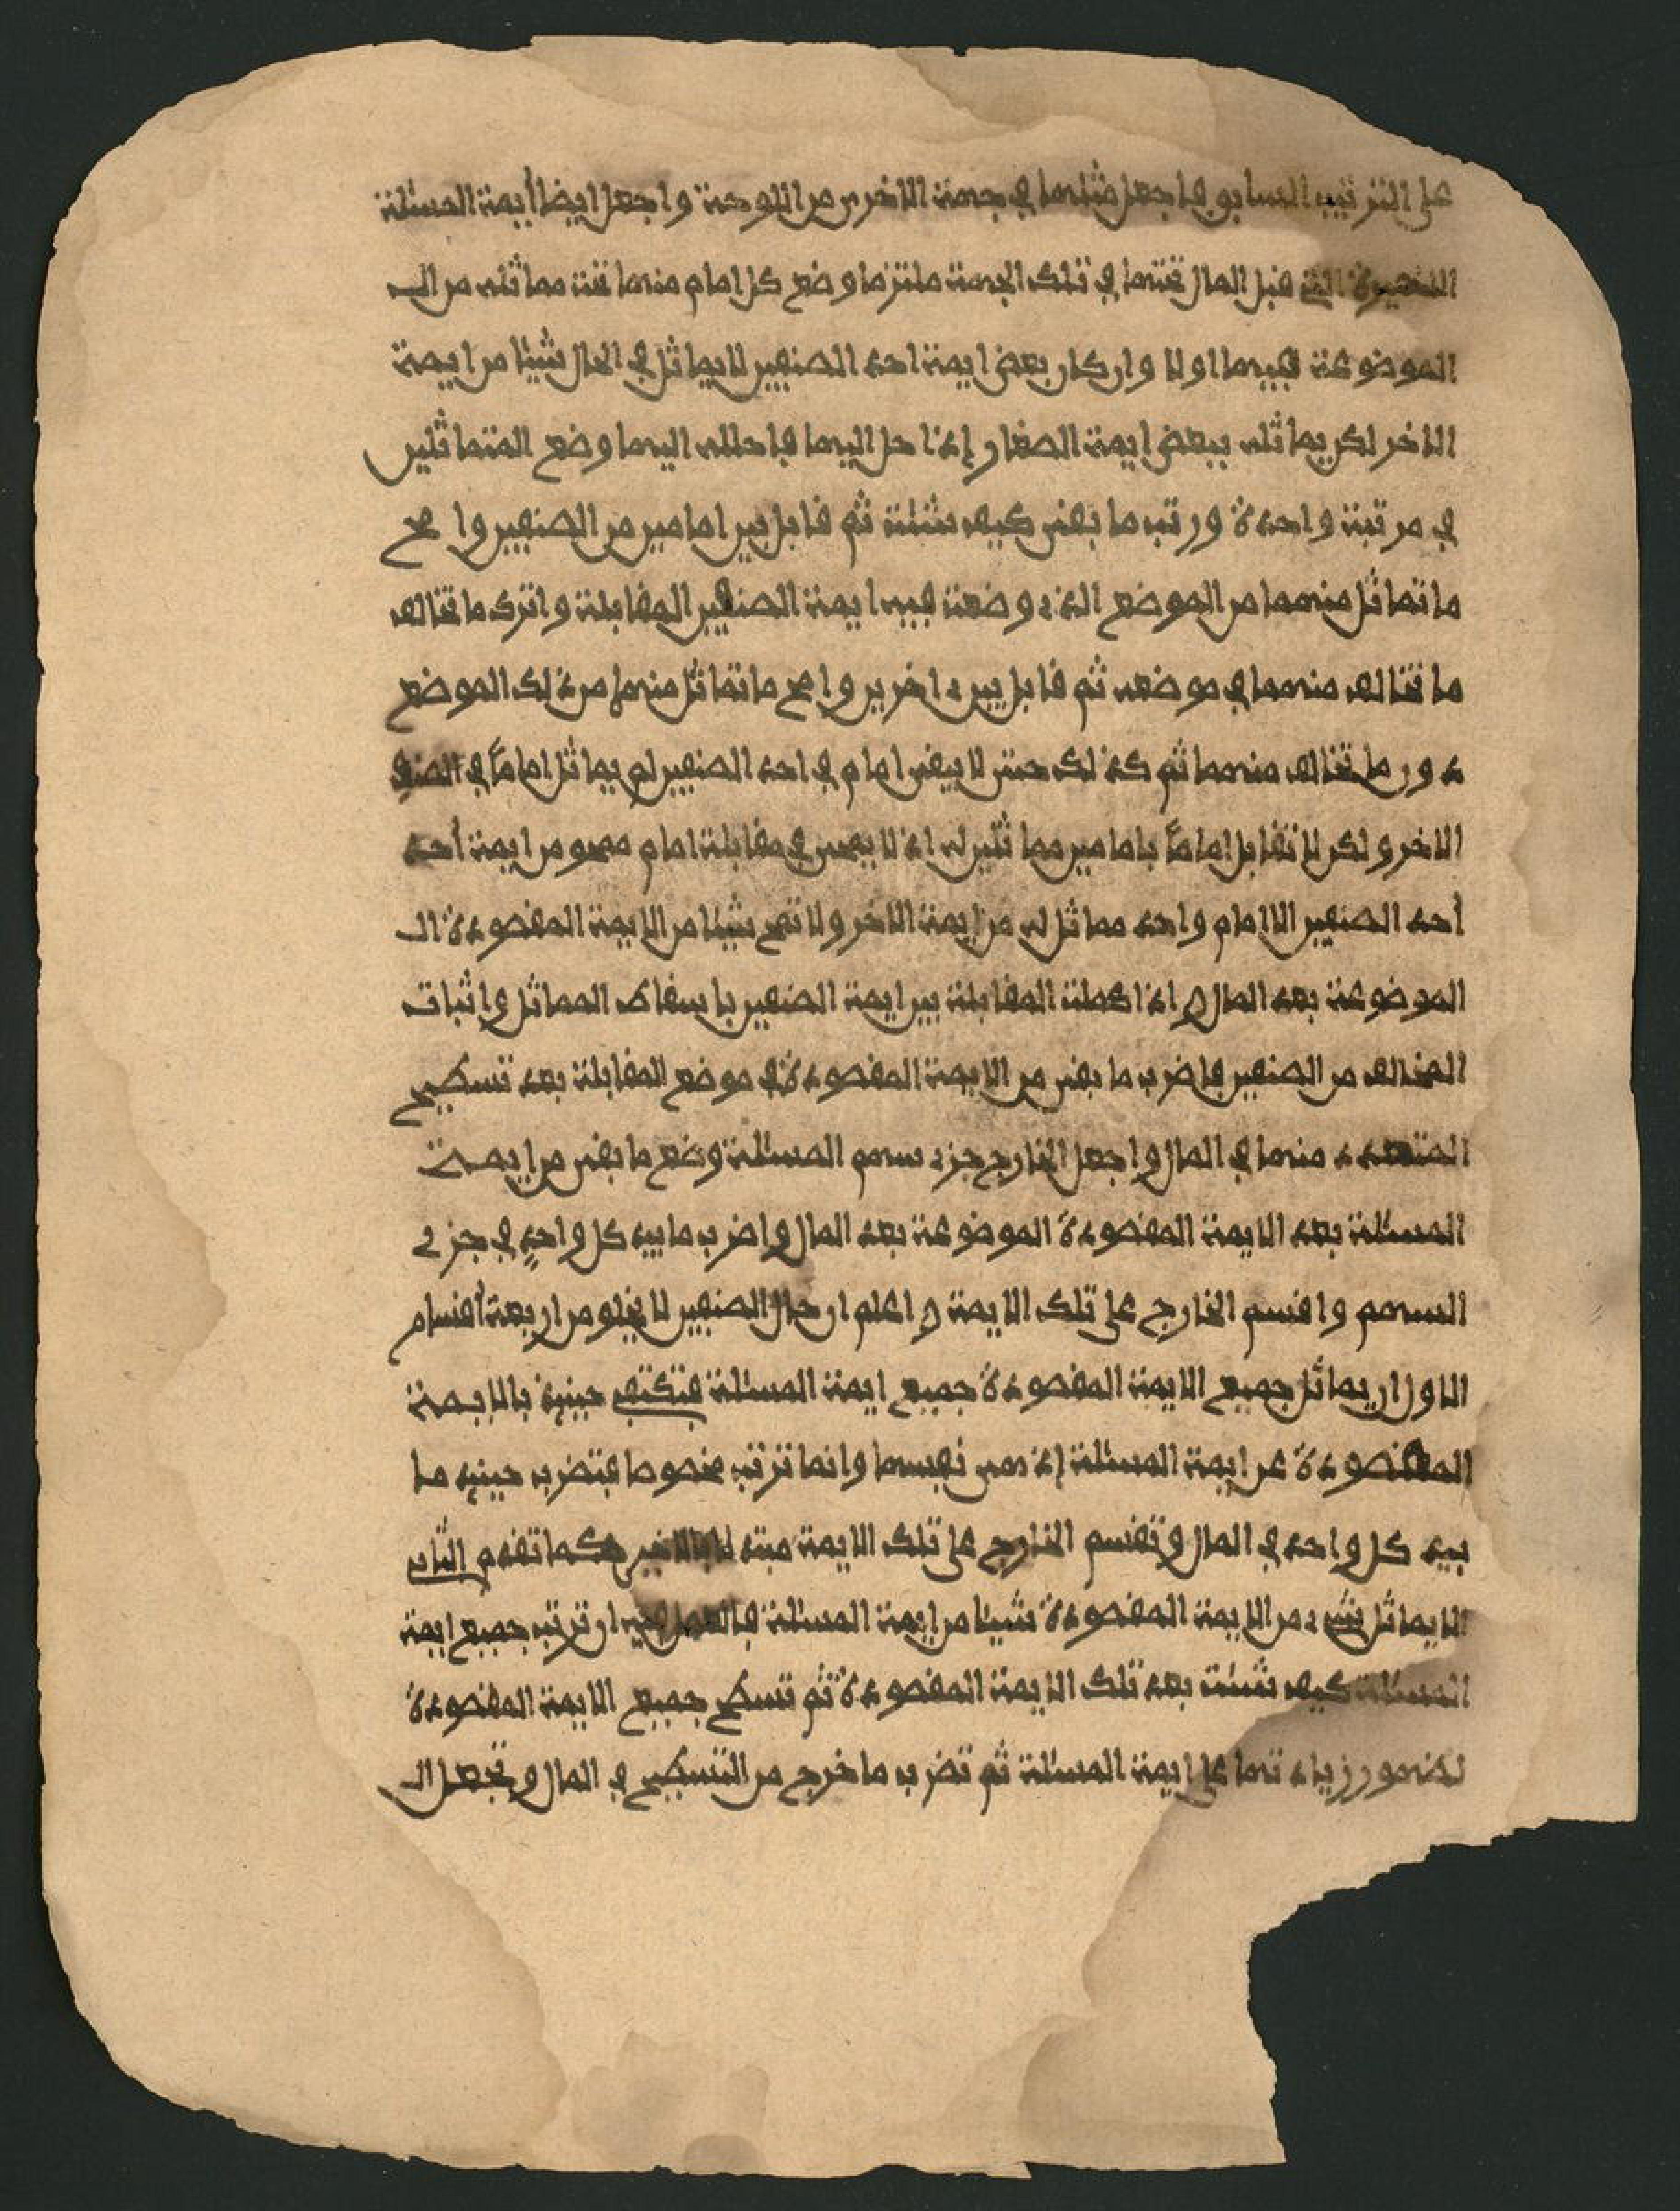 على الترتيب السابق فاجعل مثلها في جهة الاخرى من اللوحة واجعل ايضا أيمة المسئلة
التي قبل المال تحتها في تلك الجهة ملتزما وضع كل امام منها تحت مماثله من الـ
الموضوعة فيها اولا وان كان بعض ايمة احد الصنفين لا يماثل في الحال شيئا من ايمة
الاخر لكن يماثله ببعض ايمة الصغار إذا حل اليها فاحلله اليها وضع المتماثلين
في مرتبة واحدة ورتب ما بقى كيف شئت ثم قابل بين امامين من الصنفين وا مح
ما تماثل منهما من الموضع الذي وضعت فيه ايمة الصنفين المقابلة واترك ما تخالف
ما تخالف منهما في موضعه ثم قابل بين اخرين وامح ما تماثل منهما من ذلك الموضع
دون ما تخالف منهما ثم كذلك حتى لا يبقى امام في احد الصنفين لم يماثل اماماً في الصنف
الاخر ولكن لا تقابل اماماً بامامين مماثلين له اذ لا يمحى في مقابلة امام ممحو من ايمة أحد
أحد الصنفين الا امام واحد مماثل له من ايمة الاخر ولا تمح شيئا من الايمة المقصودة الـ
الموضوعة بعد المال اذا كملت المقابلة بين ايمة الصنفين باسقاط المماثل واثبات
المخالف من الصنفين فاضرب ما بقى من الايمة المقصودة في موضع المقابلة بعد تسطيح
المتعدد منها في المال واجعل الخارج جزء سهم المسئلة وضع ما بقى من ايمة
المسئلة بعد الايمة المقصودة الموضوعة بعد المال واضرب ما بيد كل واحدٍ في جزء
السهم واقسم الخارج على تلك الايمة اعلم ان حال الصنفين لا يخلو من اربعة أقسام
الاول ان يماثل جميع الايمة المقصودة جميع ايمة المسئلة فتكتفى حينئذ بالايمة
المقصودة عن ايمة المسئلة إذ هى نفسها وانما ترتب نحوها فتضرب حينئذ ما
بيد كل واحد في المال وتقسم الخارج على تلك الايمة مبتدئا بالاخير كما تقدم الثاني
الا يماثل شيء من الايمة المقصودة شيئا من ايمة المسئلة فالعمل فيه ان ترتب جميع ايمة
المسئلة كيف شئت بعد تلك الايمة المقصودة ثم تسطح جميع الايمة المقصودة
لظهور زيادتها على ايمة المسئلة ثم تضرب ما خرج من التسطيح في المال وتجعل الـ